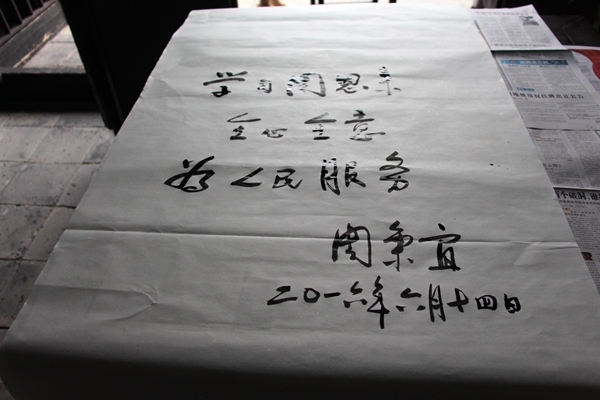 学习周恩来
全心全意
为人民服务
周秉宜
二0一六年六月十四日